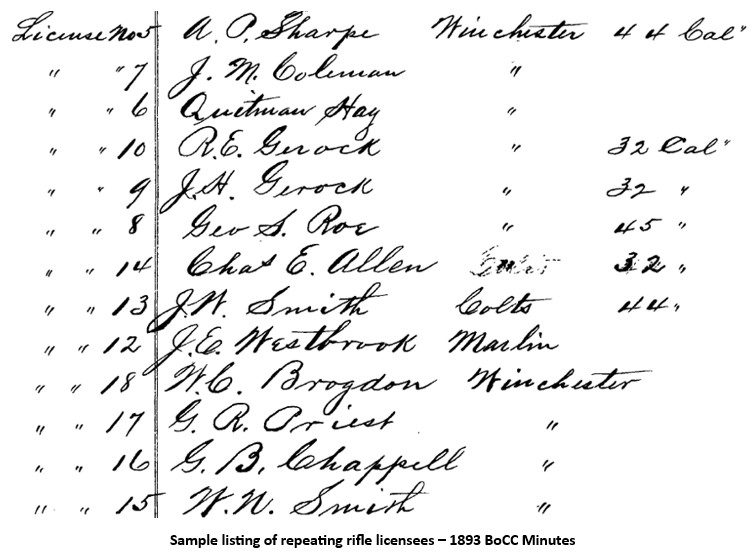 License No 5 A. P. Sharpe Winchester 44 Cal"
" " 7 J. M. Coleman "
" " 6 Quitman Hay "
" " 10 R. E. Gerock " 32 Cal"
" " 9 J. H. Gerock " 32 "
" " 8 Geo S. Roe " 45 "
" " 14 Chas E. Allen 32 "
" " 13 J. W. Smith Colts 44 "
" " 12 J. E. Westbrook Marlin
" " 18 W. C. Brogdon Winchester
" " 17 G. R. Priest "
" " 16 G. B. Chappell "
" " 15 W. N. Smith "
Sample listing of repeating rifle licensees – 1893 BoCC Minutes